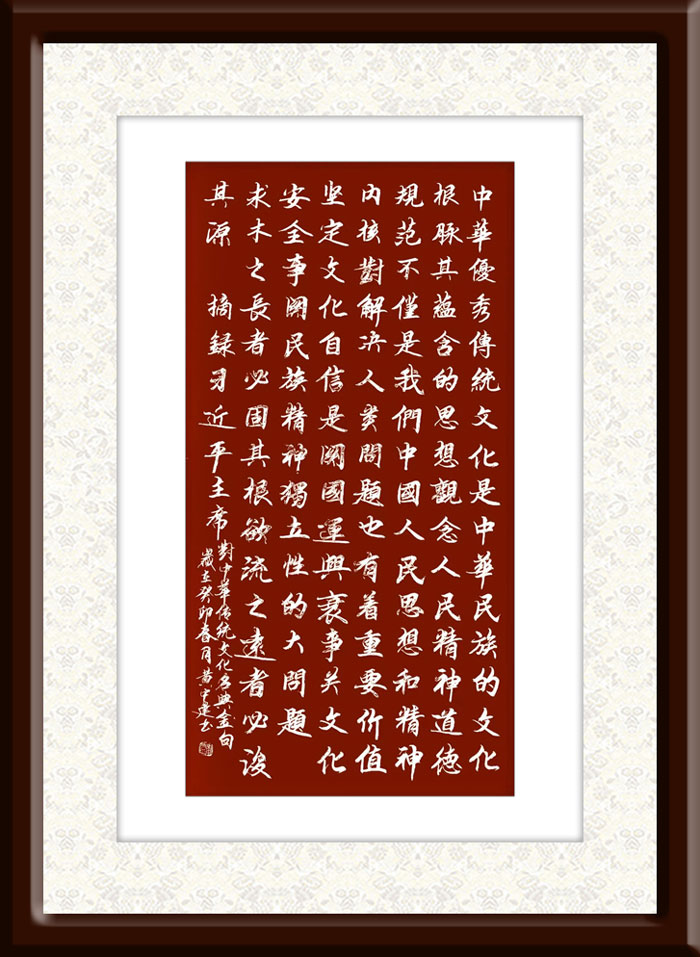 中華優秀傳統文化是中華民族的文化
根脈其蘊含的思想觀念人民精神道德
規范不僅是我們中國人民思想和精神
内核對解决人类問題也有着重要价值
坚定文化自信是関國運興衰事关文化
安全事関民族精神獨立性的大問題
求木之長者必固其根欲流之遠者必浚
其源 摘録习近平主席
對中華传統文化名典金句
歲在癸卯春月黄中书